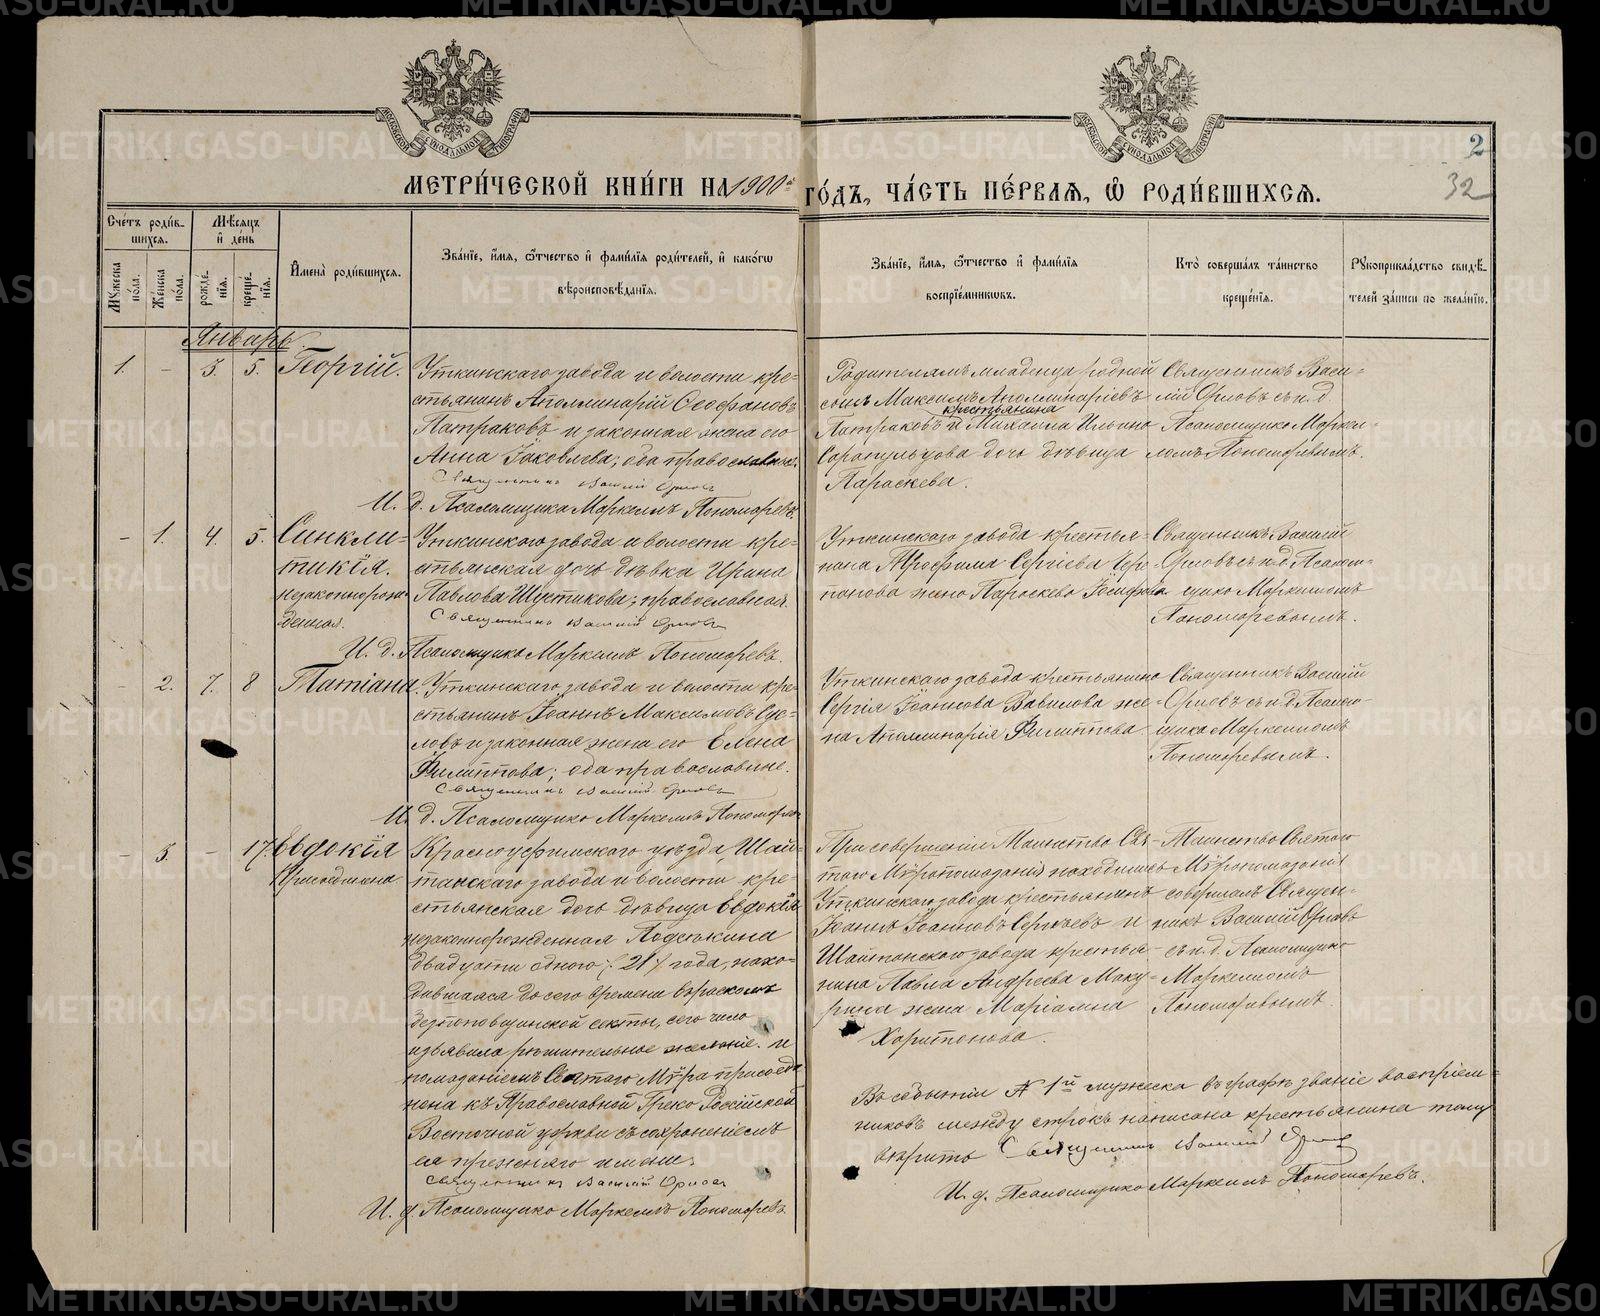 МЕТРИ́ЧЕСКОЙ КНИ́ГИ НА 1900й ГО́ДЪ, ЧА́СТЬ ПЕ́РВАЯ, Ѡ҆ РОДИ́ВШИХСЯ.
2
32
Сче́тъ роди́в-
шихся.
Мꙋ́жеска по́ла.
Же́нска по́ла.
Мѣ́сяцъ
и҆ де́нь
рожде́-
нїя.
креще́-
нїя.
И҆мена̀ роди́вшихся.
Зва́нїе, и҆́мя, ѻ҆́тчество и҆ фами́лїя роди́телей, и҆ како́гѡ
вѣроисповѣ́данїя.
Зва́нїе, и҆́мя, ѻ҆́тчество и҆ фами́лїя
воспрїе́мникѡвъ.
Кто̀ соверша́лъ та́инство
креще́нїя.
Рꙋкоприкла́дство свидѣ́-
телей за́писи по жела́нїю.
Январь.
1. – 3. 5. Георгій.
Уткинскаго завода и волости кре-
стьянинъ Аполлинарій Ѳеофановъ
Патраковъ и законная жена его
Анна Іаковлева; оба православные.
Священникъ Василій Орловъ
И. д. Псаломщика Маркеллъ Пономаревъ.
Родителямъ младенца родной
сынъ Максимъ Аполлинаріевъ
крестьянина
Патраковъ и Михаила Ильина
Сарапульцова дочь дѣвица
Параскева.
Священникъ Васи-
лій Орловъ съ и. д.
Псаломщика Маркел-
ломъ Пономаревымъ.
– 1. 4. 5. Синкли-
тикія.
незаконнорож-
денная.
Уткинскаго завода и волости кре-
стьянская дочь дѣвка Ирина
Павлова Шустикова; православная.
Священникъ Василій Орловъ
И. д. Псаломщика Маркеллъ Пономаревъ.
Уткинскаго завода крестья-
нина Трофима Сергіева Чере-
панова жена Параскева Іосифова
Священникъ Василій
Орловъ съ и. д. Псалом-
щика Маркелломъ
Пономаревымъ.
– 2. 7. 8 Татіана.
Уткинскаго завода и волости кре-
стьянинъ Іоаннъ Максимовъ Сус-
ловъ и законная жена его Елена
Филиппова; оба православные.
Священникъ Василій Орловъ
И. д. Псаломщика Маркеллъ Пономаревъ
Уткинскаго завода крестьянина
Сергія Іоаннова Вавилова же-
на Аполлинарія Филиппова
Священникъ Василій
Орловъ съ и. д. Псалом-
щика Маркелломъ
Пономаревымъ.
– 3. – 17. Евдокія
Присоединена.
Красноуфимскаго уѣзда, Шай-
танскаго завода и волости кре-
стьянская дочь дѣвица Евдокія
незаконнорожденная
двадцати одного /21/ года, нахо-
дившаяся до сего времени въ расколѣ
безпоповщинской секты, сего числа
изъявила рѣшительное желаніе и
помазаніемъ Святаго Мѵра присоеди-
нена къ Православной Греко Россійской
Восточной церкви съ сохраненіемъ
ея прежняго имени.
Священникъ Василій Орловъ
И. д. Псаломщика Маркеллъ Пономаревъ
При совершеніи Таинства Свя-
таго Мѵропомазанія находились
Уткинскаго завода крестьянинъ
Іоаннъ Іоанновъ Сергѣевъ и
Шайтанскаго завода крестья-
нина Павла Андреева Маку-
рина жена Маріамна
Харитонова.
Таинство Святаго
Мѵропомазанія
совершалъ Священ-
никъ Василій Орловъ
съ и. д. Псаломщика
Маркелломъ
Пономаревымъ.
Въ событіи № 1й мужеска въ графѣ званіе воспріем-
никовъ между строкъ написана крестьянина тому
вѣрить Священникъ Василій Орловъ
И. д. Псаломщика Маркеллъ Пономаревъ.
METRIKI.GASO-URAL.RU